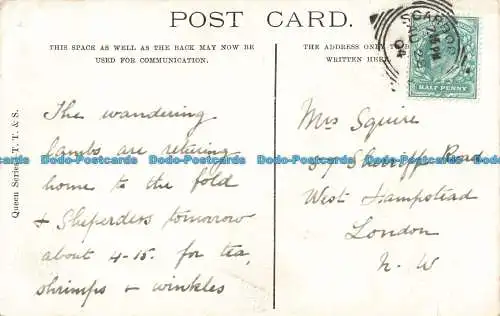 POST CARD.
THIS SPACE AS WELL AS THE BACK MAY NOW BE
USED FOR COMMUNICATION.
THE ADDRESS ONLY TO BE
WRITTEN HERE.
Queen Series T. T. & S.
SCARBORO
PM
04
HALFPENNY
The wandering
lambs are returing
home to the fold
& Sheperdess tomorrow
about 4-15. for tea,
shrimps & winkles
Mrs Squire
59 Sherriff Road
West Hampstead
London
N. W
Dodo-Postcards Dodo-Postcards Dodo-Postcards Dodo-Postcards Dodo-Postcards